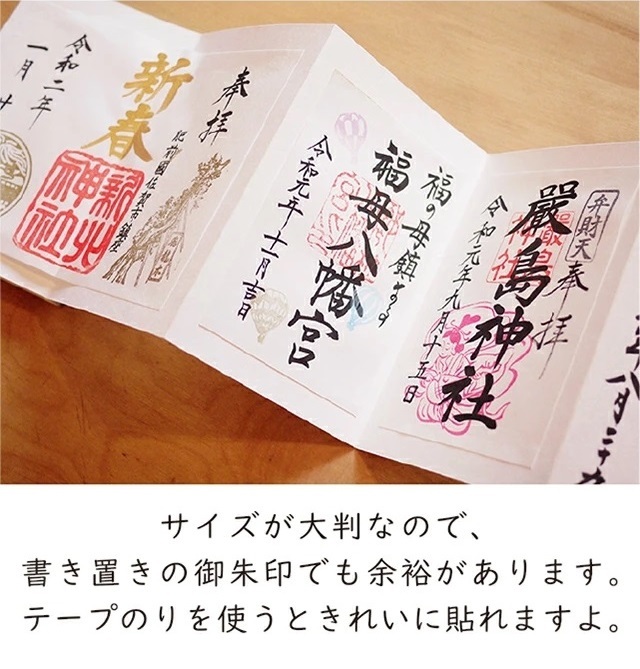 奉拝
弁財天
嚴島神社
令和元年九月十五日
福の母鎮
福母八幡宮
令和元年十一月吉日
奉拝
肥前國佐賀市鎮座
新春
新北神社
令和二年
一月
サイズが大判なので、
書き置きの御朱印でも余裕があります。
テープのりを使うときれいに貼れますよ。